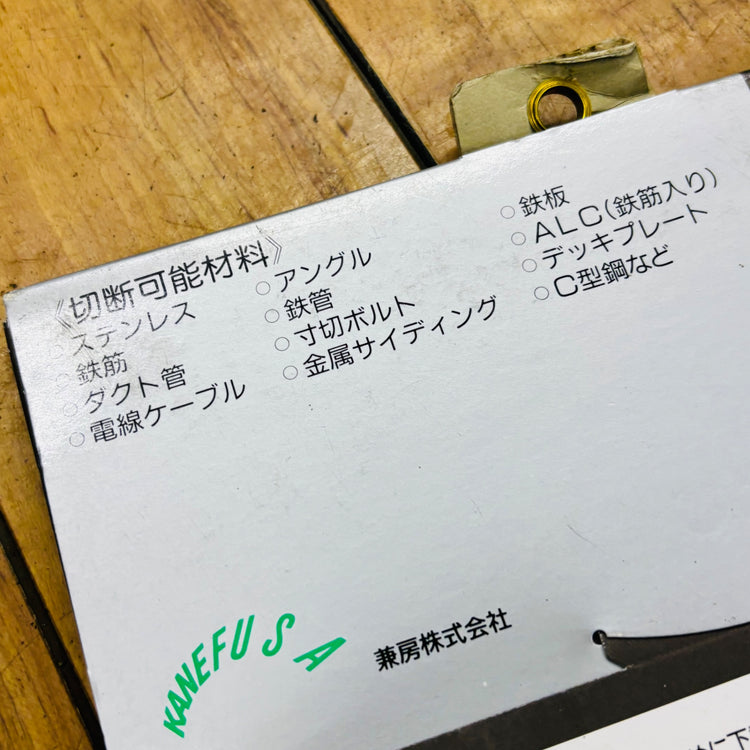 《切断可能材料》
○ステンレス
○鉄筋
○ダクト管
○電線ケーブル
○アングル
○鉄管
○寸切ボルト
○金属サイディング
○鉄板
○ALC(鉄筋入り)
○デッキプレート
○C型鋼など
KANEFUSA
兼房株式会社
に下